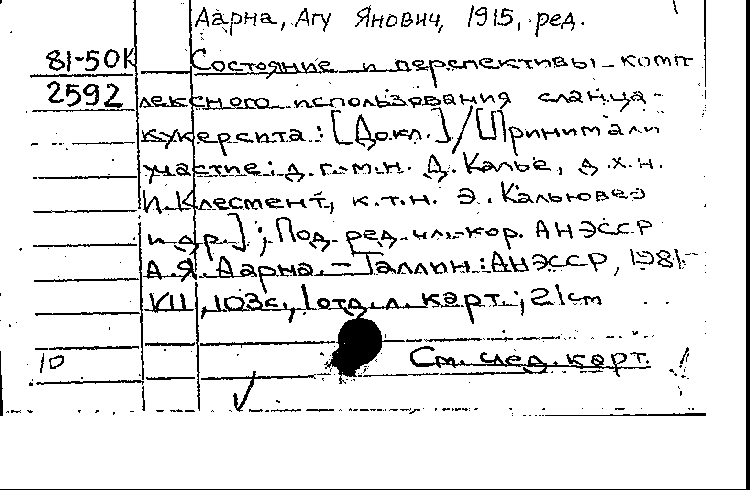 Аарна, Агу Янович, 1915, ред.
81-50К Состояние и перспективы комп
2592 лексного использования сланца-
кукерсита: [Докл.] / [Принимали
участие: д.г.-м.н. Д. Кальё, д.х.н.
И. Клесмент, к.т.н. Э. Кальювеэ
и др.]; Под ред. чл.-кор. АНЭССР
А.Я. Аарна. – Таллин: АНЭССР, 1981-
VII, 103с., 1 отд.л. карт.; 21см
10 См. след. карт.